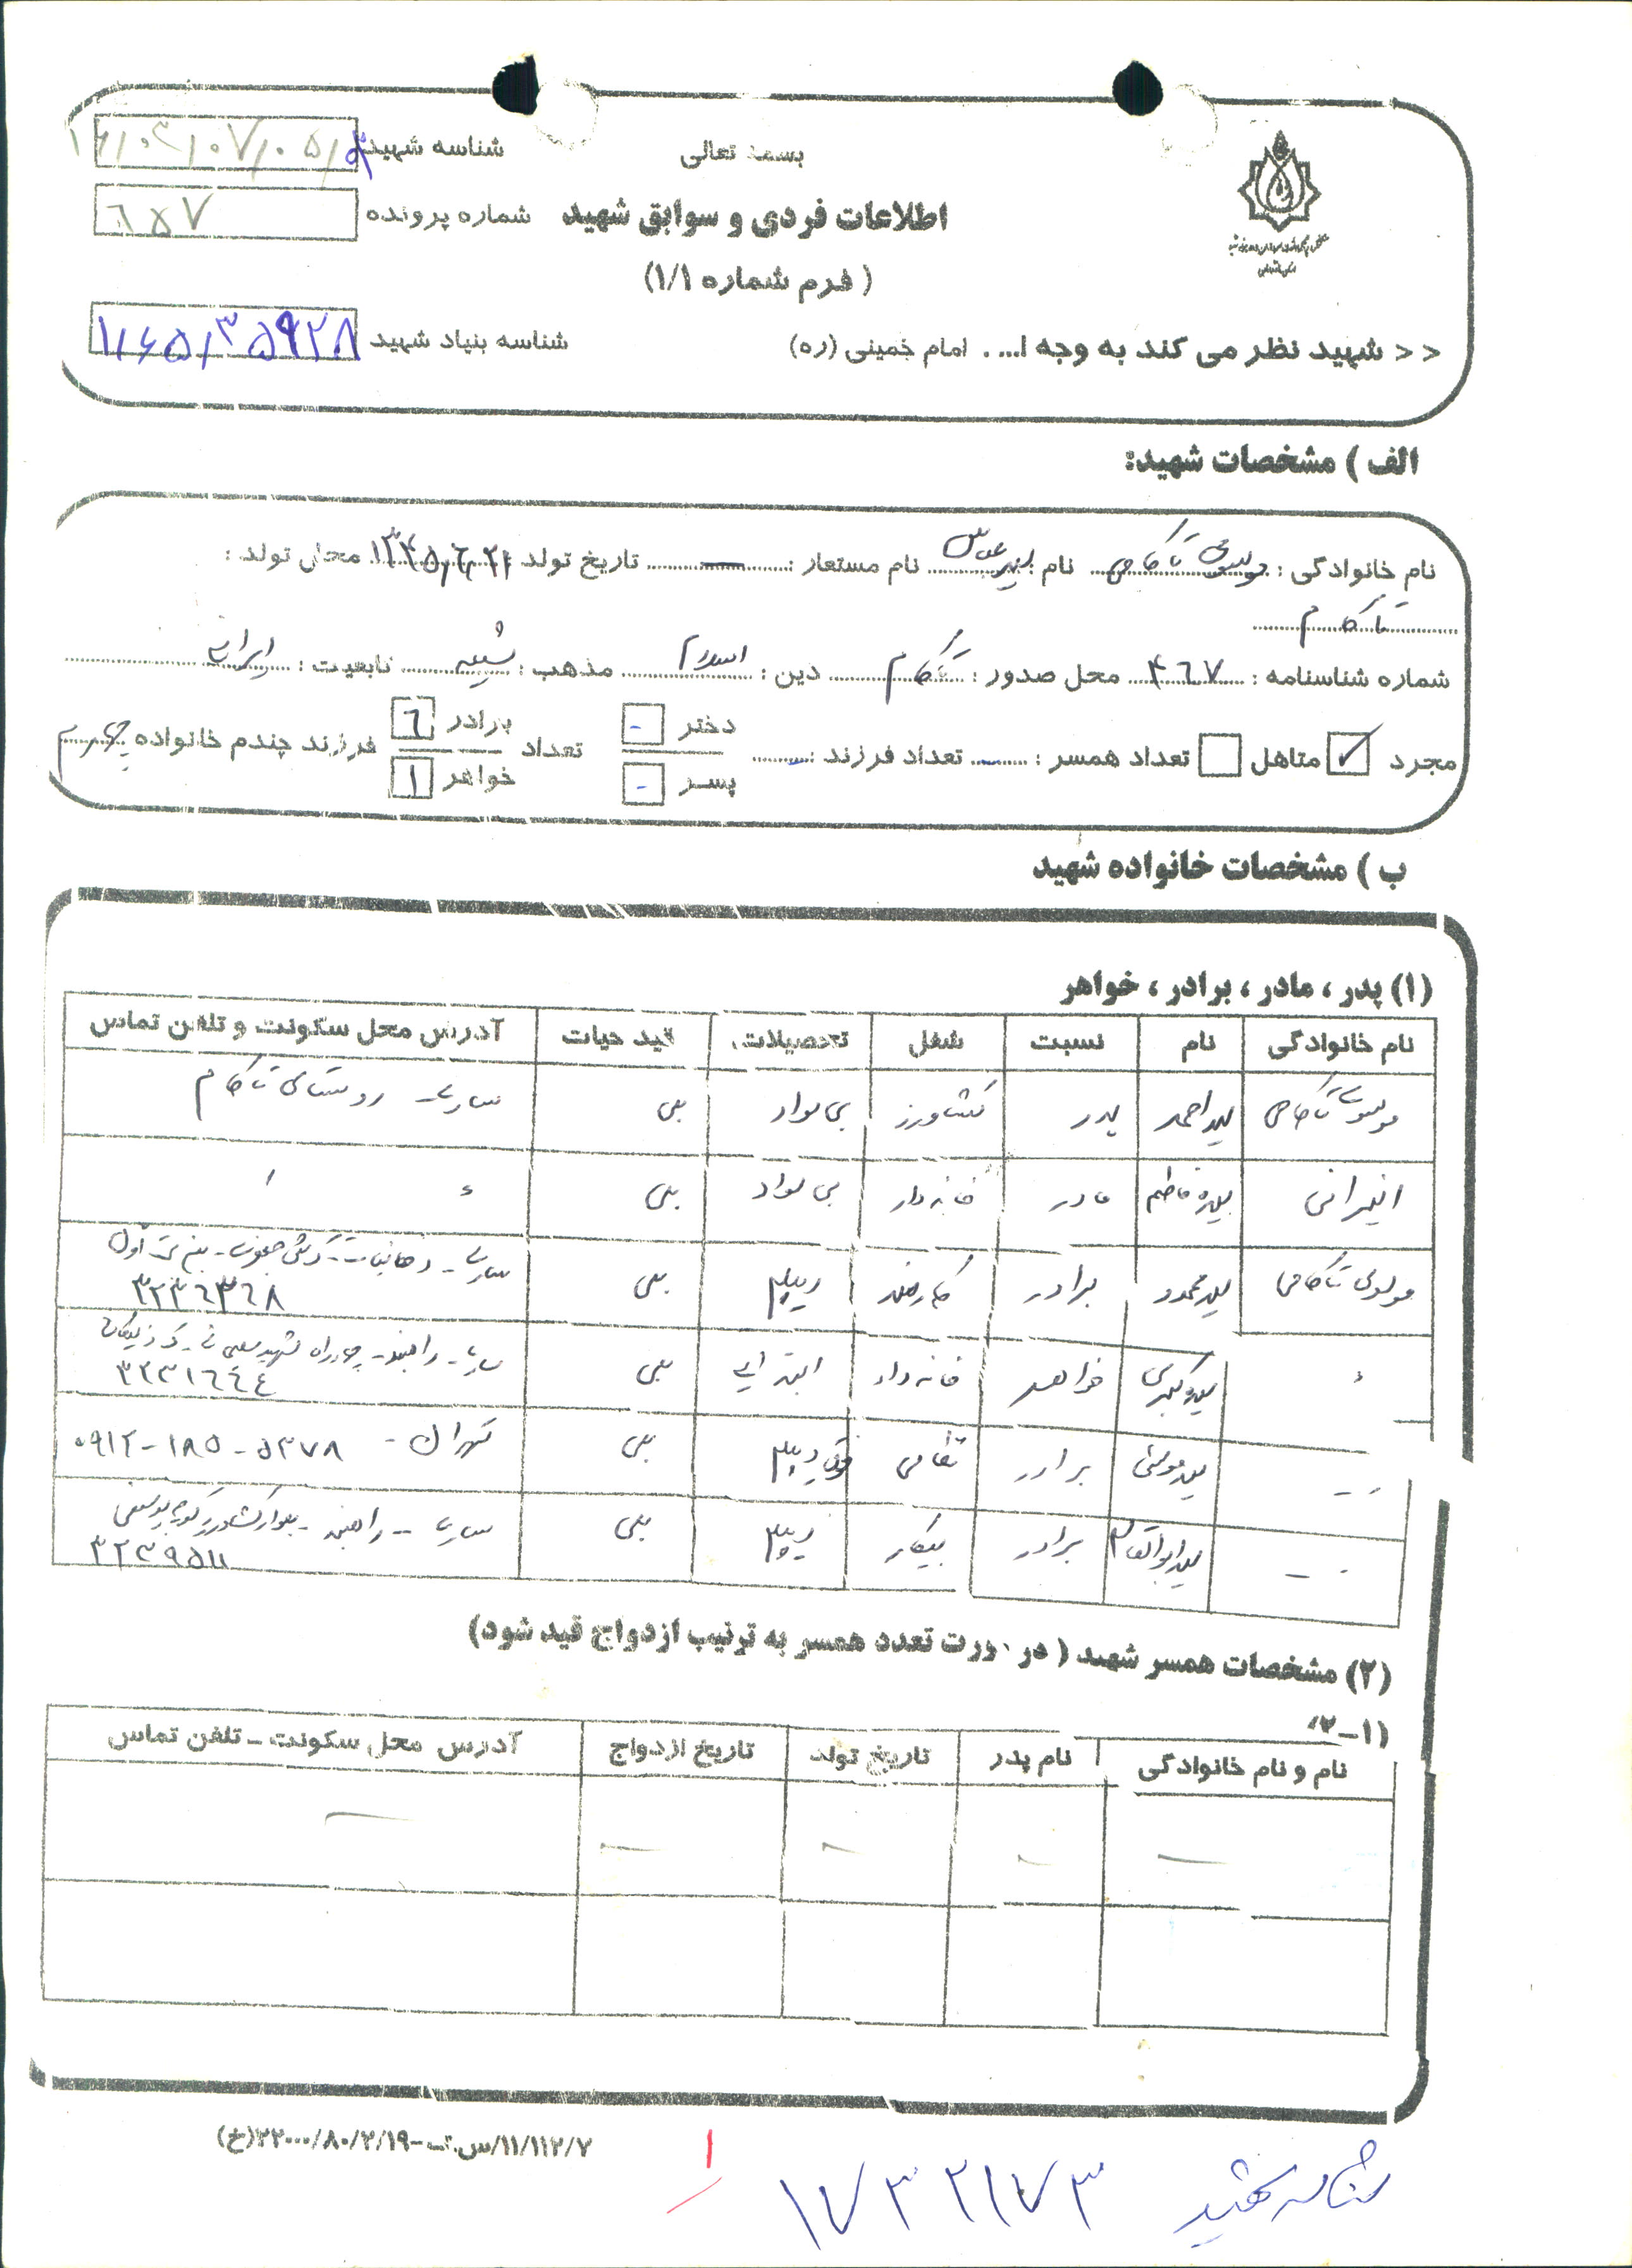 بسمه تعالی
شناسه شهید:
اطلاعات فردی و سوابق شهید
شماره پرونده ٦۵۷
( فرم شماره ۱/۱)
>> شهید نظر می کند به وجه ا... . امام خمینی (ره)
شناسه بنیاد شهید ۱/۶۵/۳۵۹۲۸
الف ) مشخصات شهید:
نام خانوادگی : موسوی تاکامی نام میرعباس نام مستعار : — تاریخ تولد : ۱۳۴۵/٦/۲۱ محل تولد :
تاکام
شماره شناسنامه : ۴٦۷ محل صدور : تاکام دین : اسلام مذهب : شیعه تابعیت : ایرانی
مجرد ✓ متاهل تعداد همسر : - تعداد فرزند : - دختر - پسر - تعداد برادر ٦ خواهر ۱ فرزند چندم خانواده چهارم
ب ) مشخصات خانواده شهید
(۱) پدر ، مادر ، برادر ، خواهر
نام خانوادگی نام نسبت شغل تحصیلات قید حیات آدرس محل سکونت و تلفن تماس
موسوی تاکامی سید احمد پدر کشاورز بی سواد بلی ساری - روستای تاکام
سیده فاطمه مادر خانه دار بی سواد بلی
موسوی تاکامی سید محمود برادر کارمند دیپلم بلی ساری - ۳۲۳٦۳٦۸
سیده کبری خواهر خانه دار ابتدایی بلی ساری - راهبند - چهارراه ۳۲۳۱٦٤٤
سید موسی برادر نظامی فوق دیپلم بلی تهران - ۰۹۱۲-۱۸۵-۵۳۷۸
سید ابوالقاسم برادر بیکار دیپلم بلی ساری - راهبند - بلوار کشاورز ۳۲۳۹۵۱۱
(۲) مشخصات همسر شهید ( در صورت تعدد همسر به ترتیب ازدواج قید شود)
(۲-۱
نام و نام خانوادگی نام پدر تاریخ تولد تاریخ ازدواج آدرس محل سکونت - تلفن تماس
۱۱/۱۱۲/۷/س.ت-۲۲۰۰۰/۸۰/۲/۱۹(خ)
شناسه شهید ۱۷۳۲۱۷۳